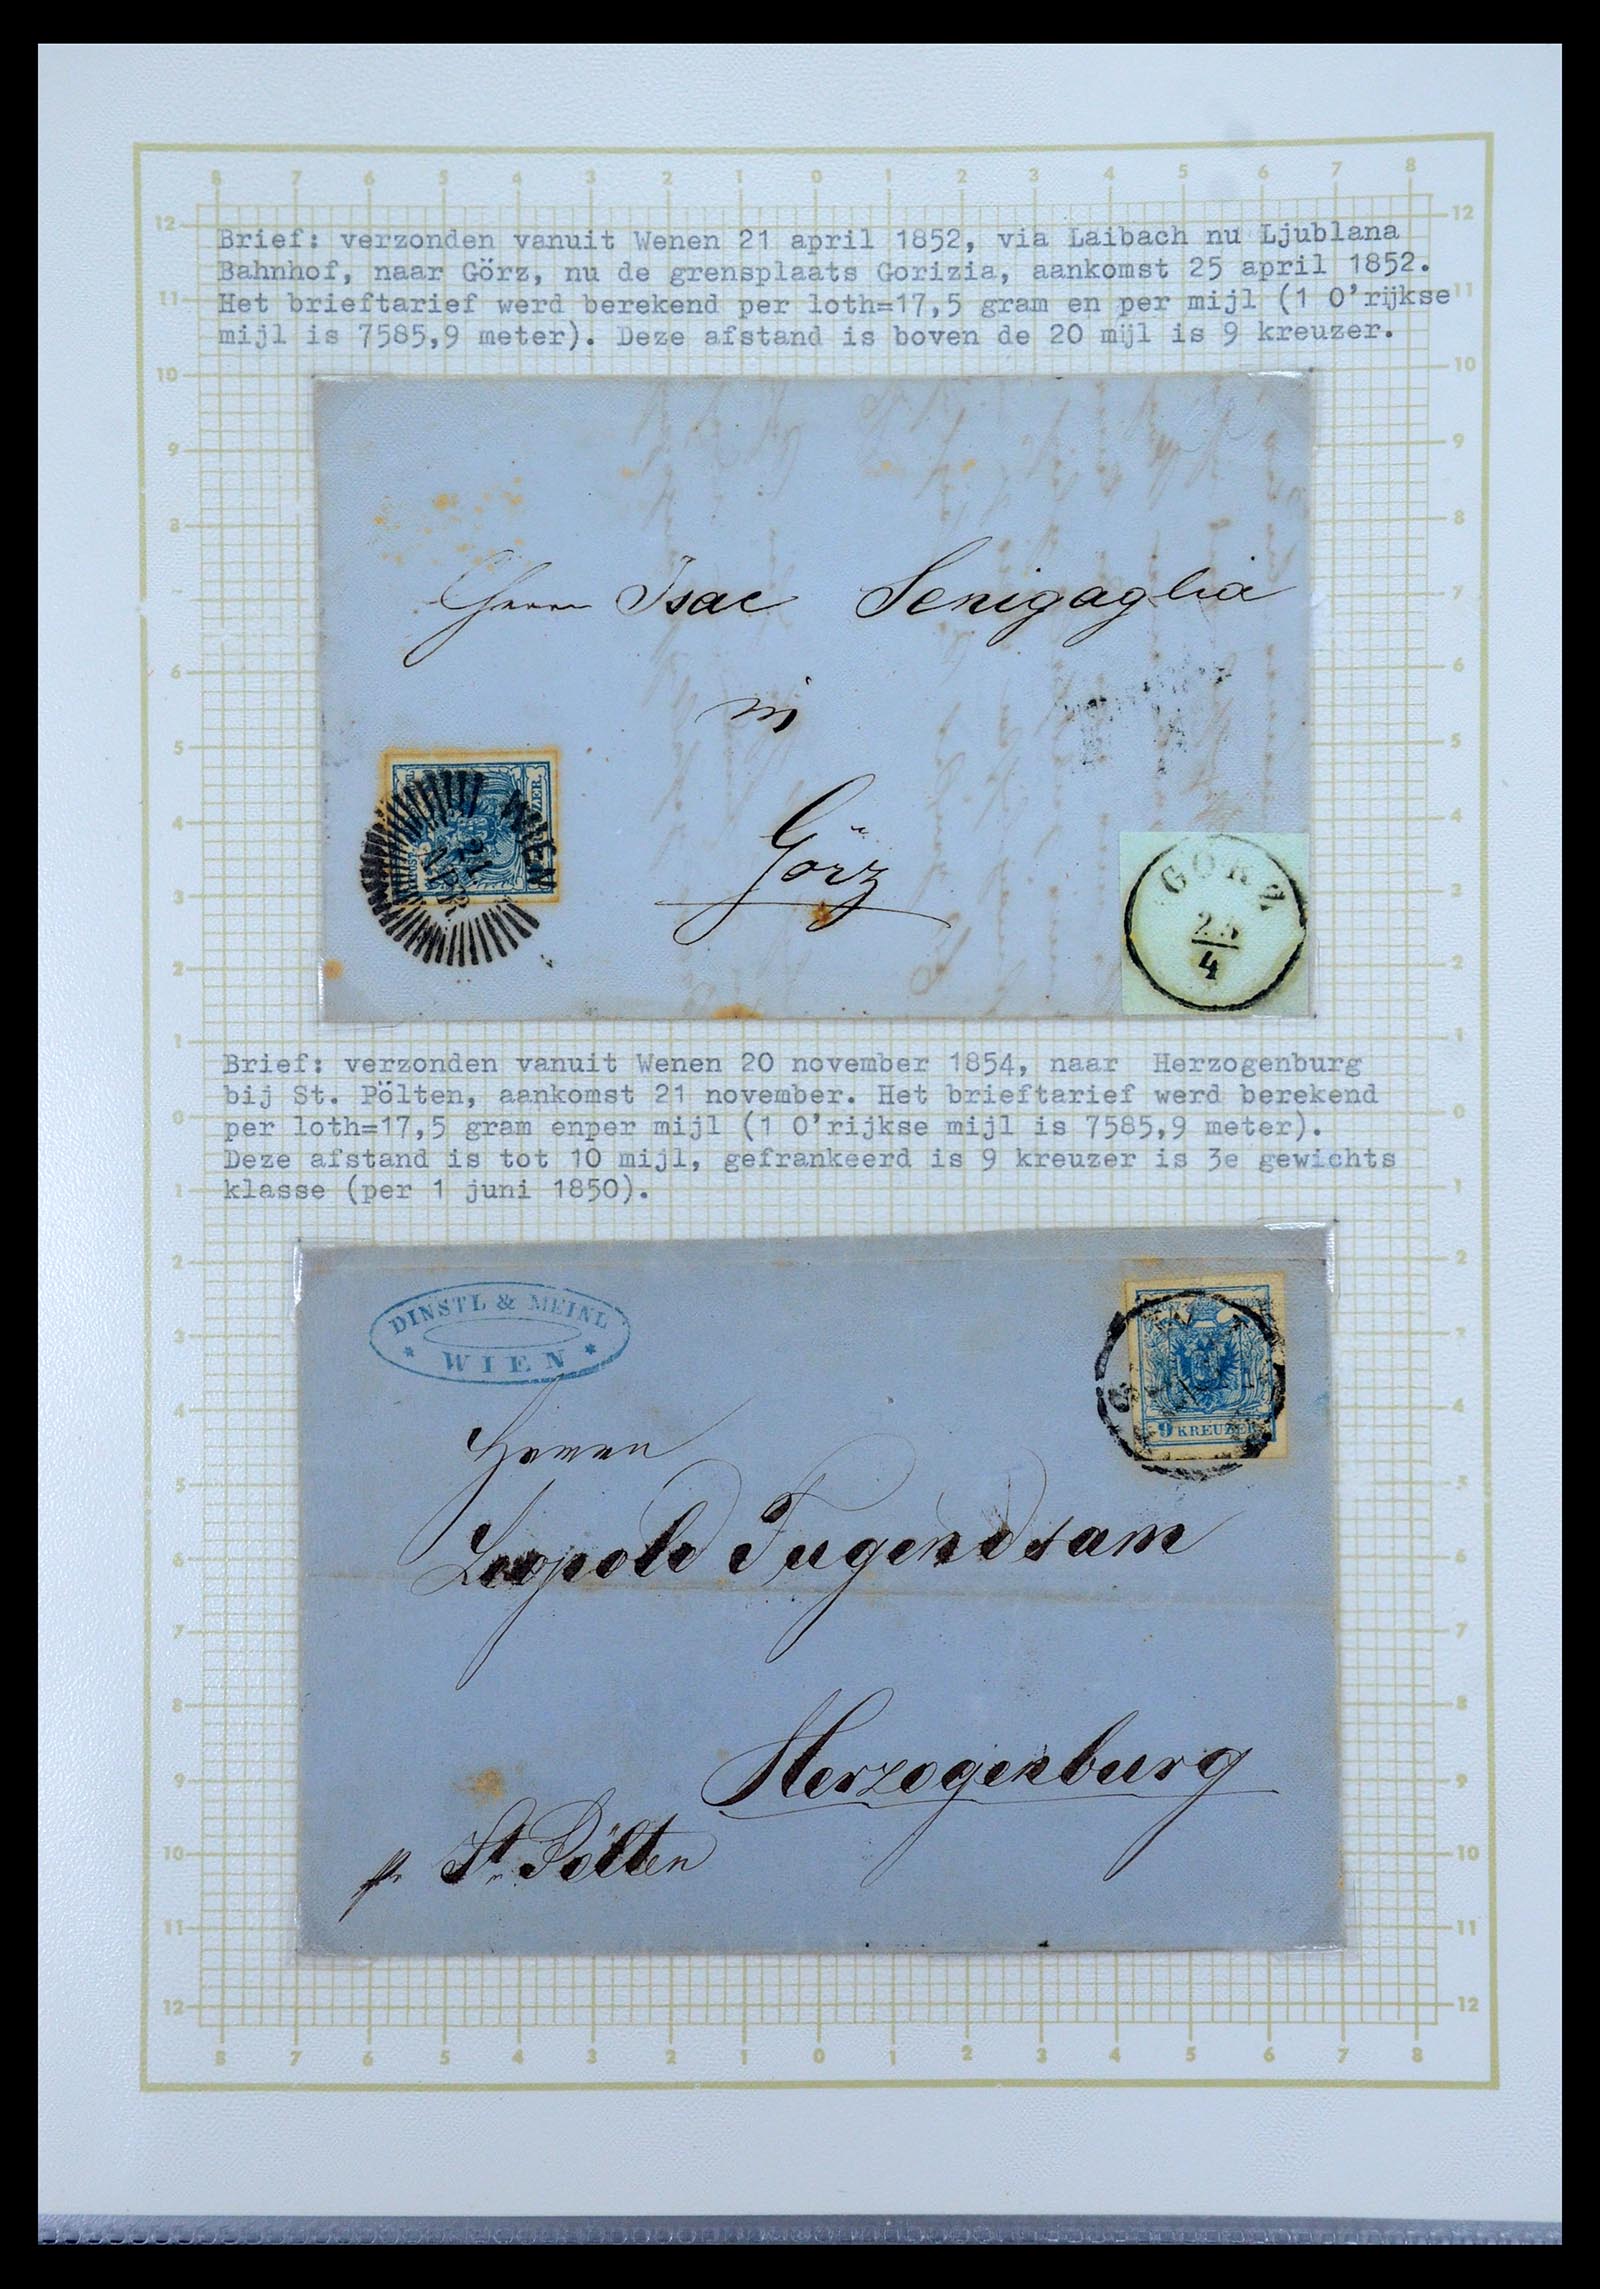 Brief: verzonden vanuit Wenen 21 april 1852, via Laibach nu Ljublana
Bahnhof, naar Görz, nu de grensplaats Gorizia, aankomst 25 april 1852.
Het brieftarief werd berekend per loth=17,5 gram en per mijl (1 O'rijkse
mijl is 7585,9 meter). Deze afstand is boven de 20 mijl is 9 kreuzer.
Herrn Isac Senigaglia
in
Görz
WIEN
21.
APR.
GÖRZ
25
4
Brief: verzonden vanuit Wenen 20 november 1854, naar Herzogenburg
bij St. Pölten, aankomst 21 november. Het brieftarief werd berekend
per loth=17,5 gram enper mijl (1 O'rijkse mijl is 7585,9 meter).
Deze afstand is tot 10 mijl, gefrankeerd is 9 kreuzer is 3e gewichts
klasse (per 1 juni 1850).
DINSTL & MEINL
* WIEN *
9 KREUZER
Herrn
Leopold Jugendsam
Herzogenburg
pr St. Pölten